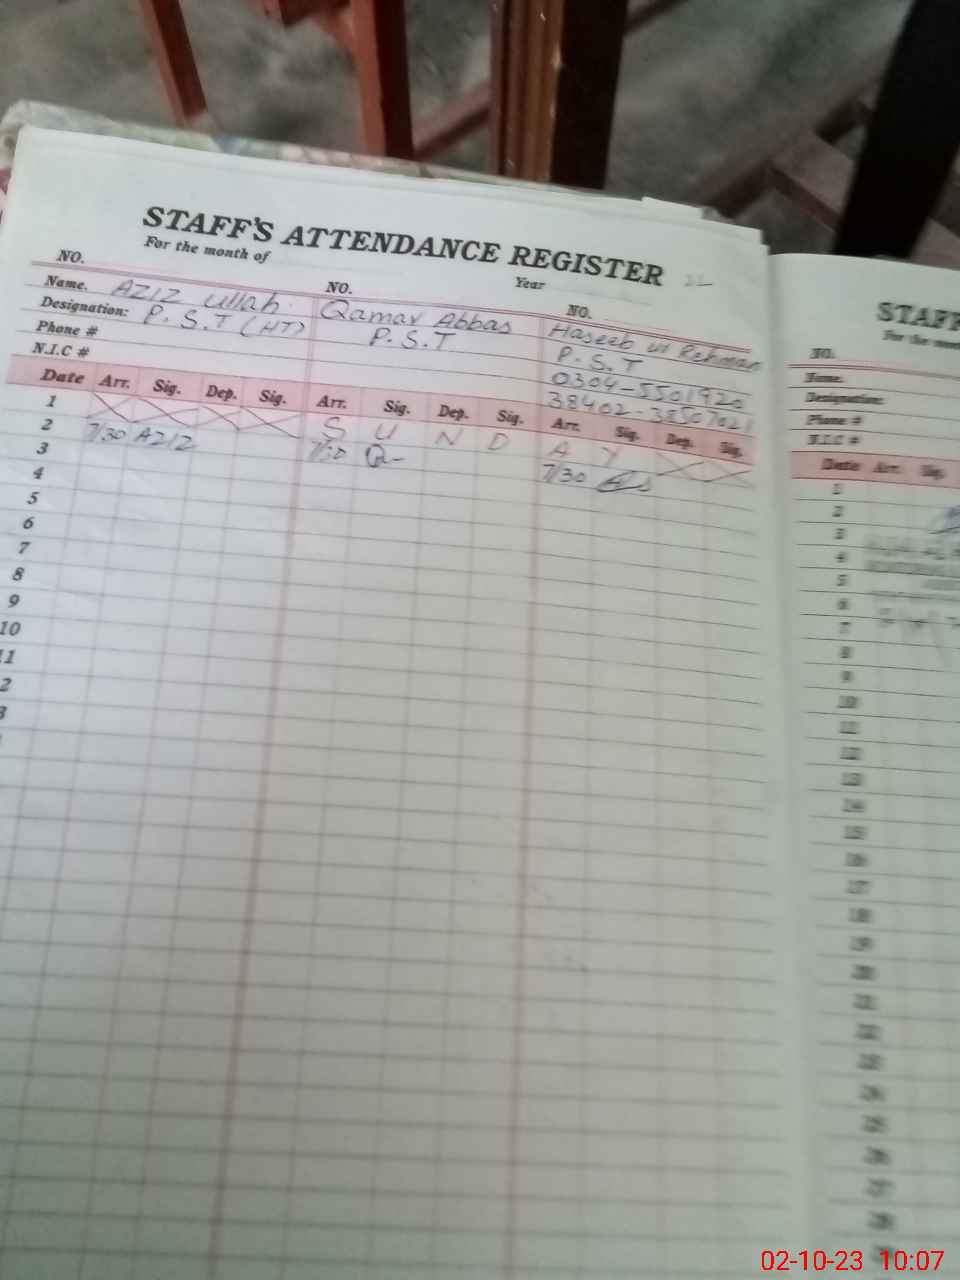 STAFF'S ATTENDANCE REGISTER
For the month of
Year
NO. NO. NO.
Name. Aziz Ullah Qamar Abbas Haseeb ul Rehman
Designation: P.S.T (HT) P.S.T P.S.T
Phone # 0304-5501920
N.I.C # 38402-38507021
Date Arr. Sig. Dep. Sig. Arr. Sig. Dep. Sig. Arr. Sig. Dep. Sig.
1 S U N D A Y
2 7/30 AZIZ 7/30 7/30
3
4
5
6
7
8
9
10
11
2
3
STAFF
For the mon
NO.
Name.
Designation:
Phone #
N.I.C #
Date Arr. Sig.
1
2
3
4
5
6
7
8
9
10
11
12
13
14
15
16
17
18
19
20
21
22
23
24
25
26
27
28
02-10-23 10:07